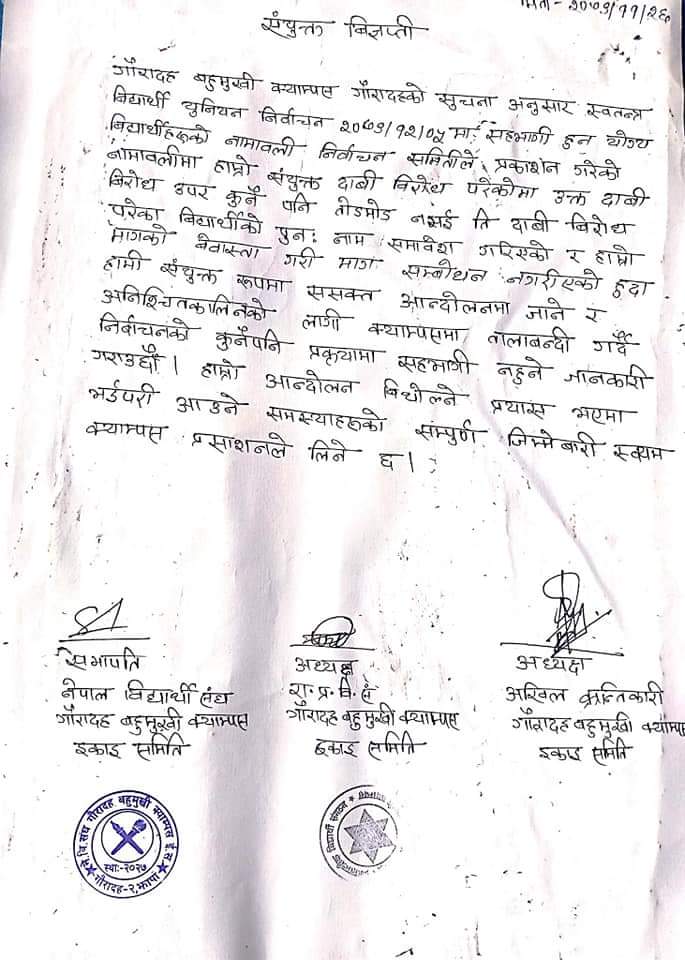 मिति - २०७९/११/२६
संयुक्त विज्ञप्ती
गौरादह बहुमुखी क्याम्पस गौरादहको सुचना अनुसार स्वतन्त्र
विद्यार्थी युनियन निर्वाचन २०७९/१२/०५ मा सहभागी हुन योग्य
विद्यार्थीहरूको नामावली निर्वाचन समितीले प्रकाशन गरेको
नामावलीमा हाम्रो संयुक्त दाबी विरोध परेकोमा उक्त दाबी
विरोध उपर कुनै पनि तोडमोड नभई ति दाबी विरोध
परेका विद्यार्थीको पुनः नाम समावेश गरिएको र हाम्रो
मागको बेवास्ता गरी माग सम्बोधन नगरीएको हुदा
हामी संयुक्त रूपमा ससक्त आन्दोलनमा जाने र
अनिश्चितकालिनको लागी क्याम्पसमा तालाबन्दी गर्दै
निर्वाचनको कुनैपनि प्रकृयामा सहभागी नहुने जानकारी
गराउछौं । हाम्रो आन्दोलन विथोल्ने प्रयास भएमा
भईपरी आउने समस्याहरूको सम्पुर्ण जिम्मेबारी स्वयम
क्याम्पस प्रसाशनले लिने छ ।
सभापति
नेपाल विद्यार्थी संघ
गौरादह बहुमुखी क्याम्पस
इकाइ समिति
अध्यक्ष
रा. प्र. वि. सं
गौरादह बहुमुखी क्याम्पस
इकाइ समिति
अध्यक्ष
अखिल क्रान्तिकारी
गौरादह बहुमुखी क्याम्पस
इकाइ समिति
ने.वि.संघ गौरादह बहुमुखी क्याम्पस ई.स.
स्था:-२०२७
गौरादह-२, झापा